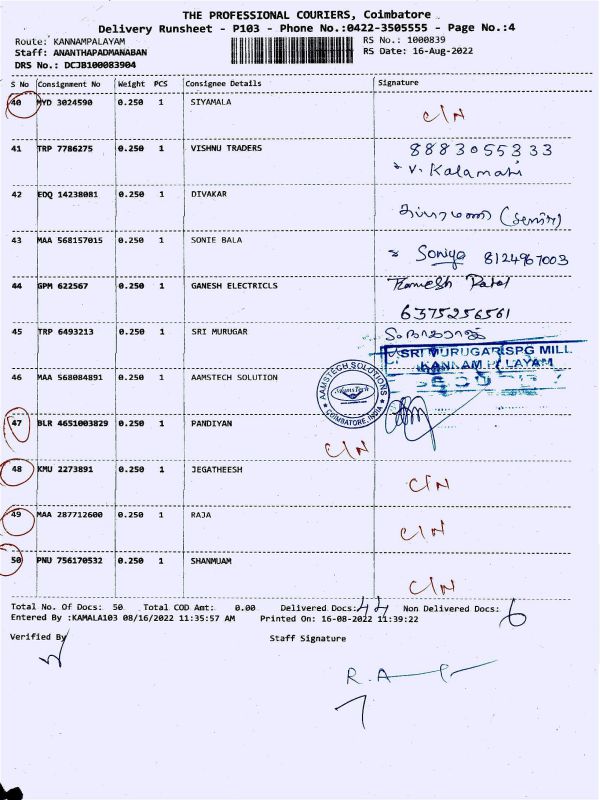 THE PROFESSIONAL COURIERS, Coimbatore
Delivery Runsheet - P103 - Phone No.:0422-3505555 - Page No.:4
Route: KANNAMPALAYAM RS No.: 1000839
Staff: ANANTHAPADMANABAN RS Date: 16-Aug-2022
DRS No.: DCJB100083904
S No Consignment No Weight PCS Consignee Details Signature
40 MYD 3024590 0.250 1 SIYAMALA C/N
41 TRP 7786275 0.250 1 VISHNU TRADERS 8883055333
V. Kalamani
42 EDQ 14238081 0.250 1 DIVAKAR
43 MAA 568157015 0.250 1 SONIE BALA Soniya 8124967003
44 GPM 622567 0.250 1 GANESH ELECTRICLS
6375256561
45 TRP 6493213 0.250 1 SRI MURUGAR
SRI MURUGAR SPG MILL
KANNAMPALAYAM
46 MAA 568084891 0.250 1 AAMSTECH SOLUTION AAMSTECH SOLUTIONS
AamsTech
COIMBATORE, INDIA
47 BLR 4651003829 0.250 1 PANDIYAN C/N
48 KMU 2273891 0.250 1 JEGATHEESH C/N
49 MAA 287712600 0.250 1 RAJA C/N
50 PNU 756170532 0.250 1 SHANMUAM C/N
Total No. Of Docs: 50 Total COD Amt: 0.00 Delivered Docs: 44 Non Delivered Docs: 6
Entered By :KAMALA103 08/16/2022 11:35:57 AM Printed On: 16-08-2022 11:39:22
Verified By Staff Signature
R.A